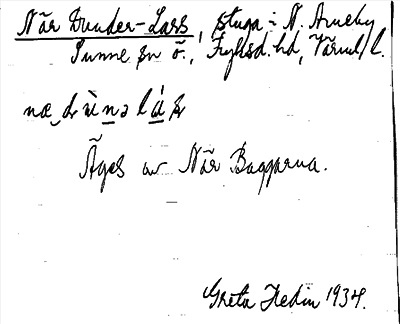 När Dunder-Lars, stuga i N. Arneby
Sunne sn ö., Fryksd. hd, Värml. l.
Äges av När Baggarna.
Greta Hedin 1934.